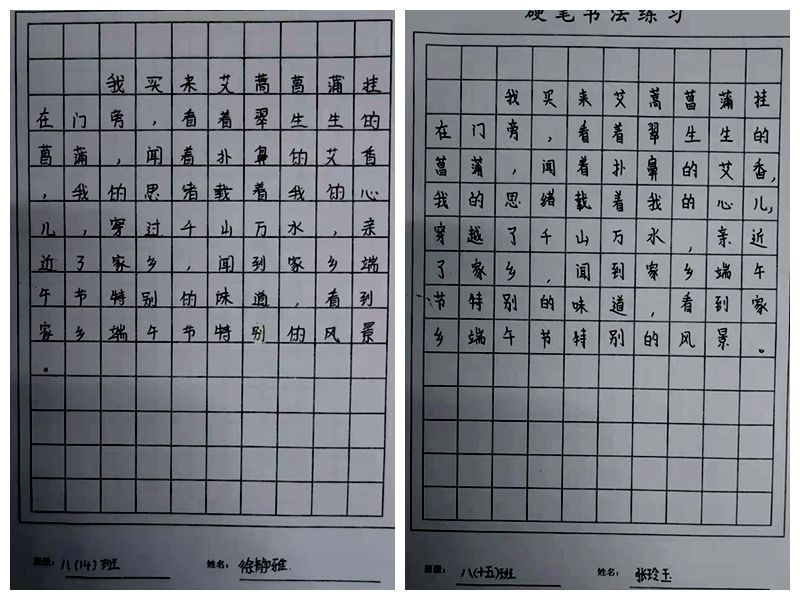 我买来艾蒿菖蒲挂
在门旁，看着翠生生的
菖蒲，闻着扑鼻的艾香
，我的思绪载着我的心
儿，穿过千山万水，亲
近了家乡，闻到家乡端
午节特别的味道，看到
家乡端午节特别的风景
。
班级：八(14)班
姓名：徐静雅
硬笔书法练习
我买来艾蒿菖蒲挂
在门旁，看着翠生生的
菖蒲，闻着扑鼻的艾香，
我的思绪载着我的心儿，
穿越了千山万水，亲近
了家乡，闻到家乡端午
节特别的味道，看到家
乡端午节特别的风景。
班级：八(十五)班
姓名：张玲玉